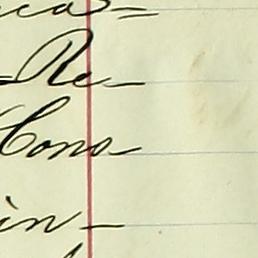 ica=
-Re-
Cons
in-